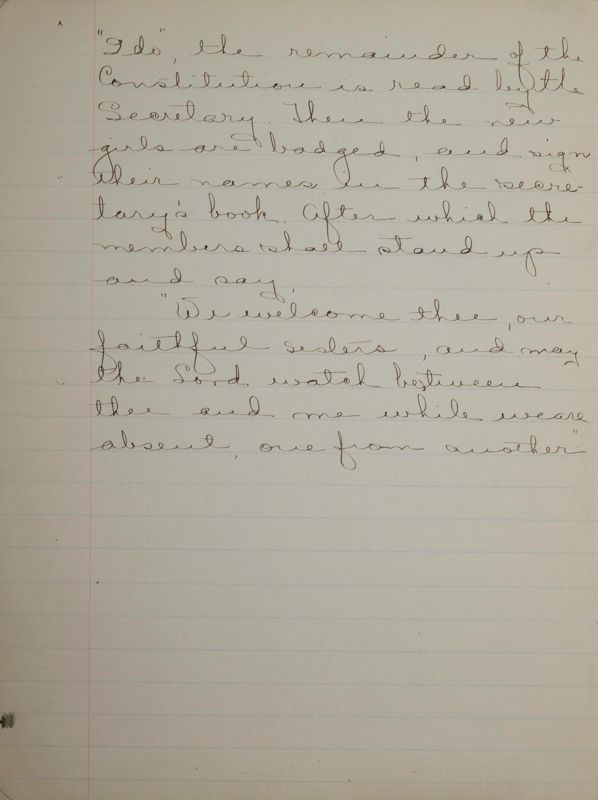 "I do", the remainder of the
Constitution is read by the
Secretary. Then the new
girls are badged, and sign
their names in the secre-
tary's book. After which the
members shall stand up
and say,
"We welcome thee, our
faithful sisters, and may
the Lord watch between
thee and me while we are
absent, one from another"